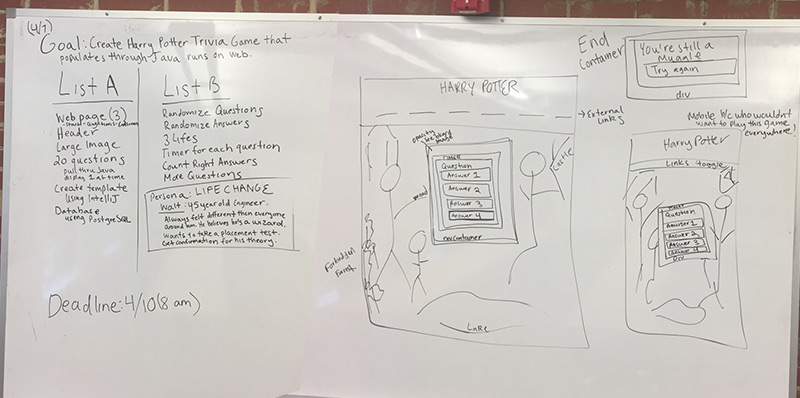 (4/7)
Goal: Create Harry Potter Trivia Game that
populates through Java runs on web.
List A
Web page (3)
Header
Large Image
20 questions
pull thru Java
display 1 at time
Create template
Using IntelliJ
Database
using PostgreSQL
List B
Randomize Questions
Randomize Answers
3 Lifes
Timer for each question
Count Right Answers
More Questions
Persona: LIFE CHANGE
Walt: 45 year old Engineer.
Always felt different then everyone
around him. He believes he's a wizard.
Wants to take a placement test.
Get confirmation for his theory.
Deadline: 4/10 (8 am)
HARRY POTTER
→ External
Links
opacity
Timer
Question
Answer 1
Answer 2
Answer 3
Answer 4
Container
Castle
Forbidden
Forest
Lake
End
Container
You're still a
Muggle
Try again
div
Mobile b/c who wouldn't
want to play this game
everywhere!
Harry Potter
Links toggle
Timer
Question
Answer 1
Answer 2
Answer 3
Answer 4
Div